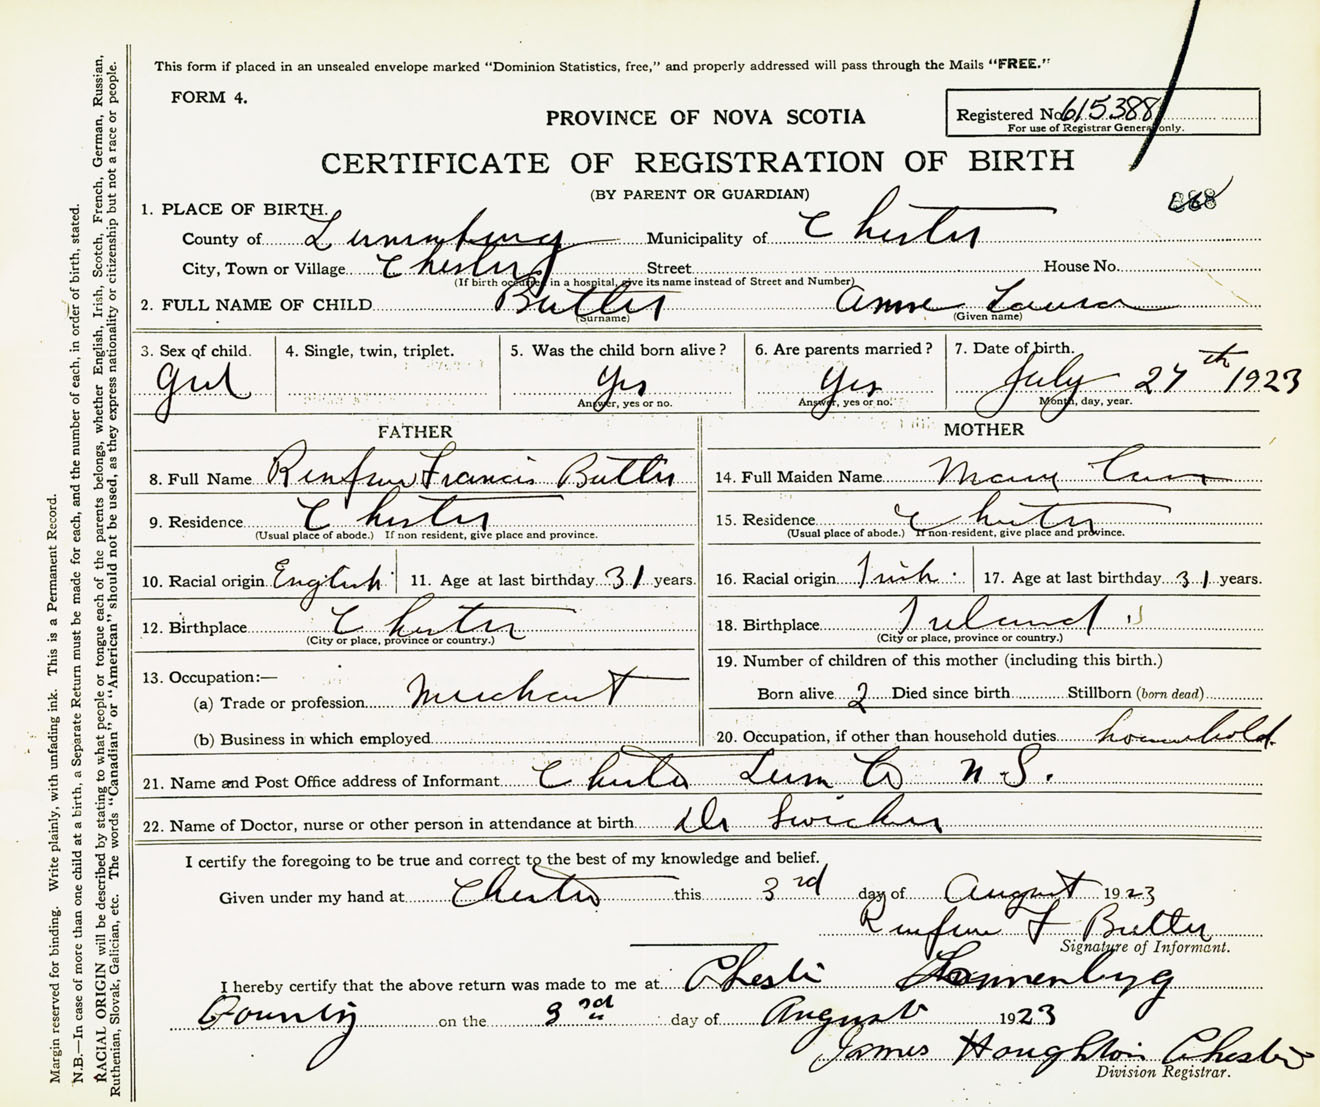 This form if placed in an unsealed envelope marked "Dominion Statistics, free," and properly addressed will pass through the Mails "FREE."
FORM 4.
PROVINCE OF NOVA SCOTIA
Registered No. 615388
For use of Registrar General only.
CERTIFICATE OF REGISTRATION OF BIRTH
(BY PARENT OR GUARDIAN)
1. PLACE OF BIRTH.
County of Lunenburg Municipality of Chester
City, Town or Village Chester Street House No.
(If birth occurred in a hospital, give its name instead of Street and Number)
2. FULL NAME OF CHILD Butler Anne Laura
(Surname) (Given name)
3. Sex of child. 4. Single, twin, triplet. 5. Was the child born alive? 6. Are parents married? 7. Date of birth.
Girl Yes Yes July 27th 1923
Answer, yes or no. Answer, yes or no. Month, day, year.
FATHER MOTHER
8. Full Name Francis Butler 14. Full Maiden Name Mary
9. Residence Chester 15. Residence Chester
(Usual place of abode.) If non resident, give place and province. (Usual place of abode.) If non-resident, give place and province.
10. Racial origin English 11. Age at last birthday 31 years. 16. Racial origin Irish 17. Age at last birthday 31 years.
12. Birthplace Chester 18. Birthplace Ireland
(City or place, province or country.) (City or place, province or country.)
19. Number of children of this mother (including this birth.)
13. Occupation:—
(a) Trade or profession Merchant Born alive 2 Died since birth Stillborn (born dead)
(b) Business in which employed 20. Occupation, if other than household duties household.
21. Name and Post Office address of Informant Chester Lun Co N.S.
22. Name of Doctor, nurse or other person in attendance at birth Dr
I certify the foregoing to be true and correct to the best of my knowledge and belief.
Given under my hand at Chester this 3rd day of August 1923
F Butler
Signature of Informant.
I hereby certify that the above return was made to me at Chester Lunenburg
County on the 3rd day of August 1923
James Houghton Chester
Division Registrar.
Margin reserved for binding. Write plainly, with unfading ink. This is a Permanent Record.
N.B.—In case of more than one child at a birth, a Separate Return must be made for each, and the number of each, in order of birth, stated.
RACIAL ORIGIN will be described by stating to what people or tongue each of the parents belongs, whether English, Irish, Scotch, French, German, Russian,
Ruthenian, Slovak, Galician, etc. The words "Canadian" or "American" should not be used, as they express nationality or citizenship but not a race or people.